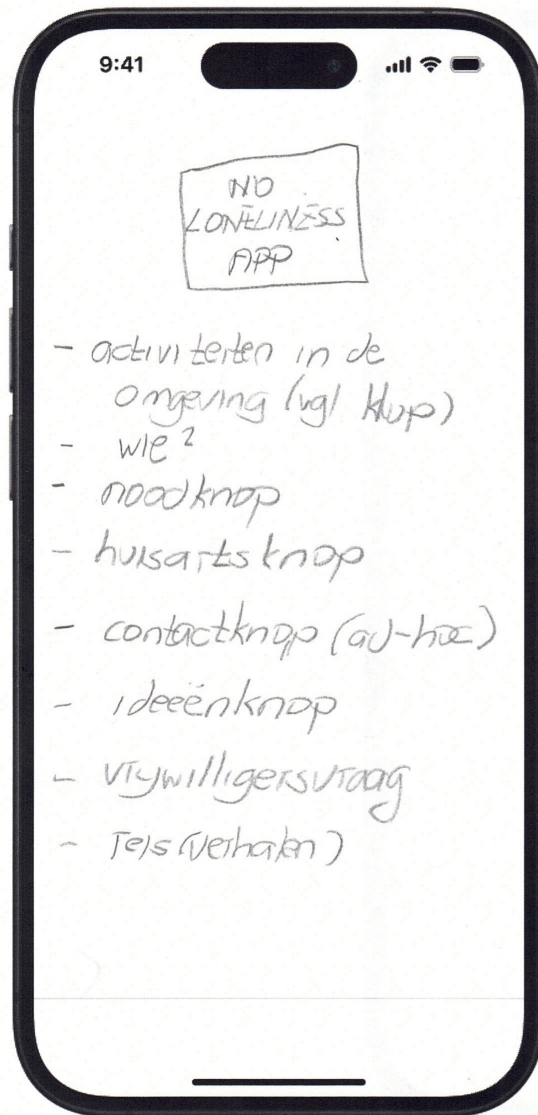 9:41
NO
LONELINESS
APP
- activiteiten in de
omgeving (vgl Klup)
- wie?
- noodknop
- huisartsknop
- contactknop (ad-hoc)
- ideeënknop
- vrijwilligersvraag
- reis(verhalen)